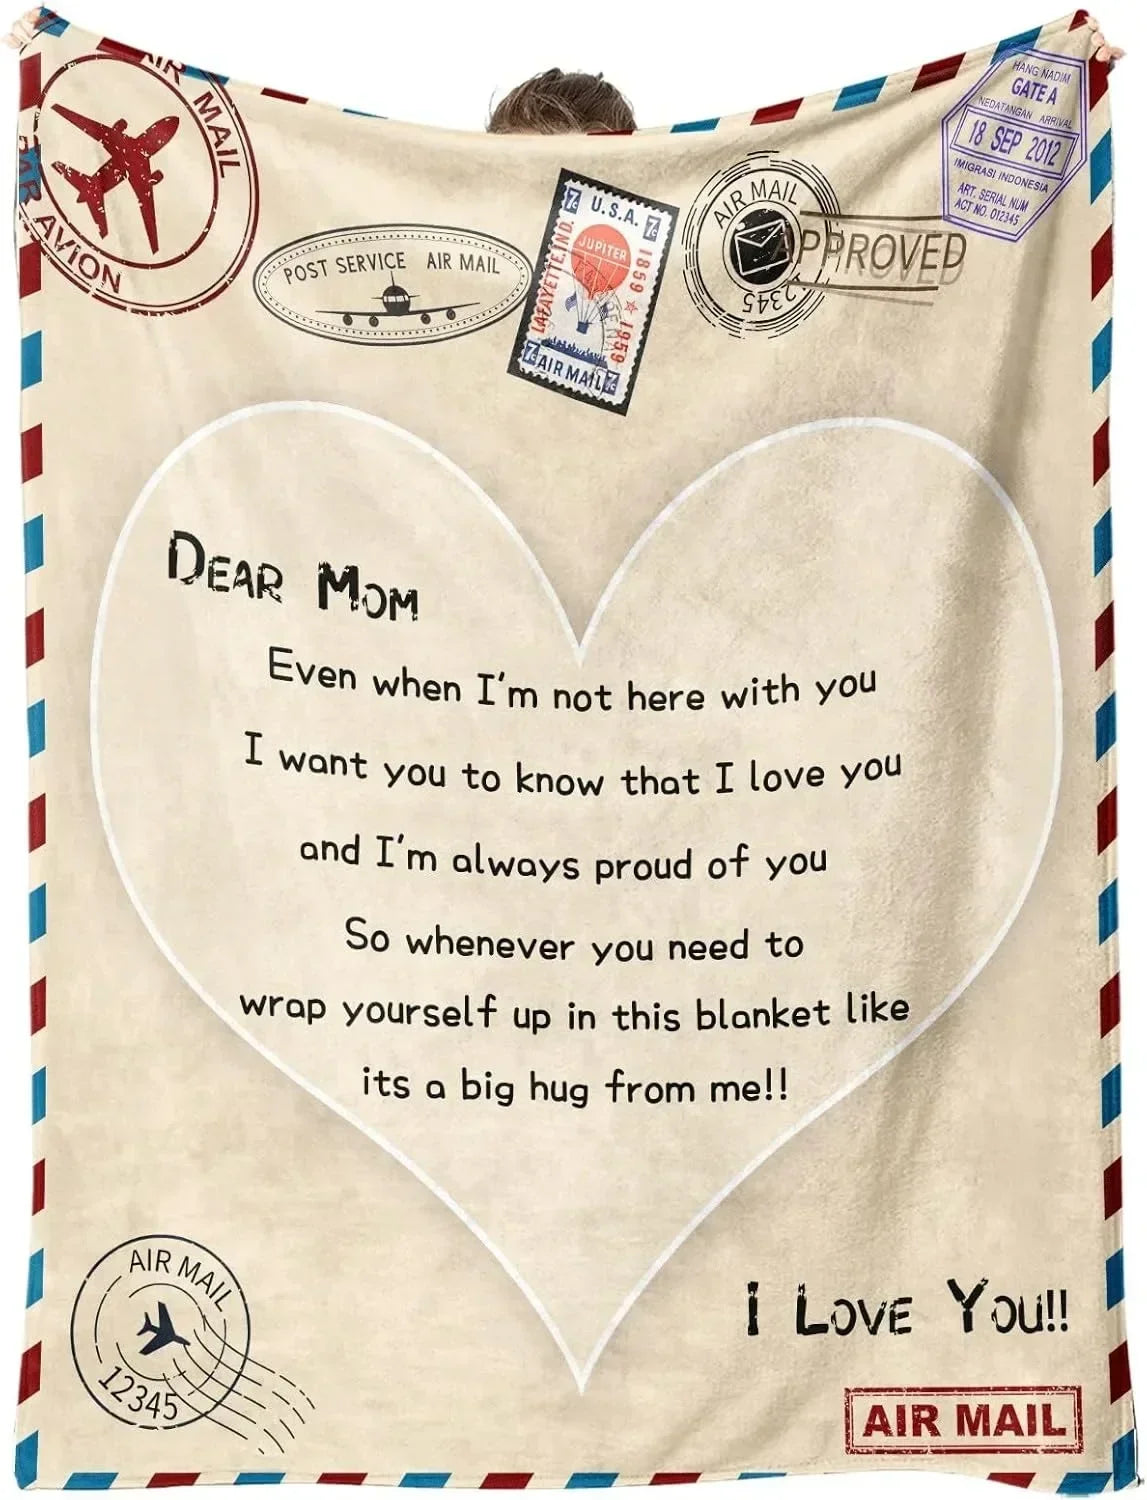 AIR MAIL
PAR AVION
POST SERVICE AIR MAIL
7c U.S.A. 7c
JUPITER
LAFAYETTE, IND.
1859 ★ 1959
7c AIR MAIL 7c
AIR MAIL
12345
APPROVED
HANG NADIM
GATE A
NEDATANGAN ARRIVAL
18 SEP 2012
IMIGRASI INDONESIA
ART. SERIAL NUM
ACT NO. 012345
DEAR MOM
Even when I'm not here with you
I want you to know that I love you
and I'm always proud of you
So whenever you need to
wrap yourself up in this blanket like
its a big hug from me!!
AIR MAIL
12345
I LOVE YOU!!
AIR MAIL